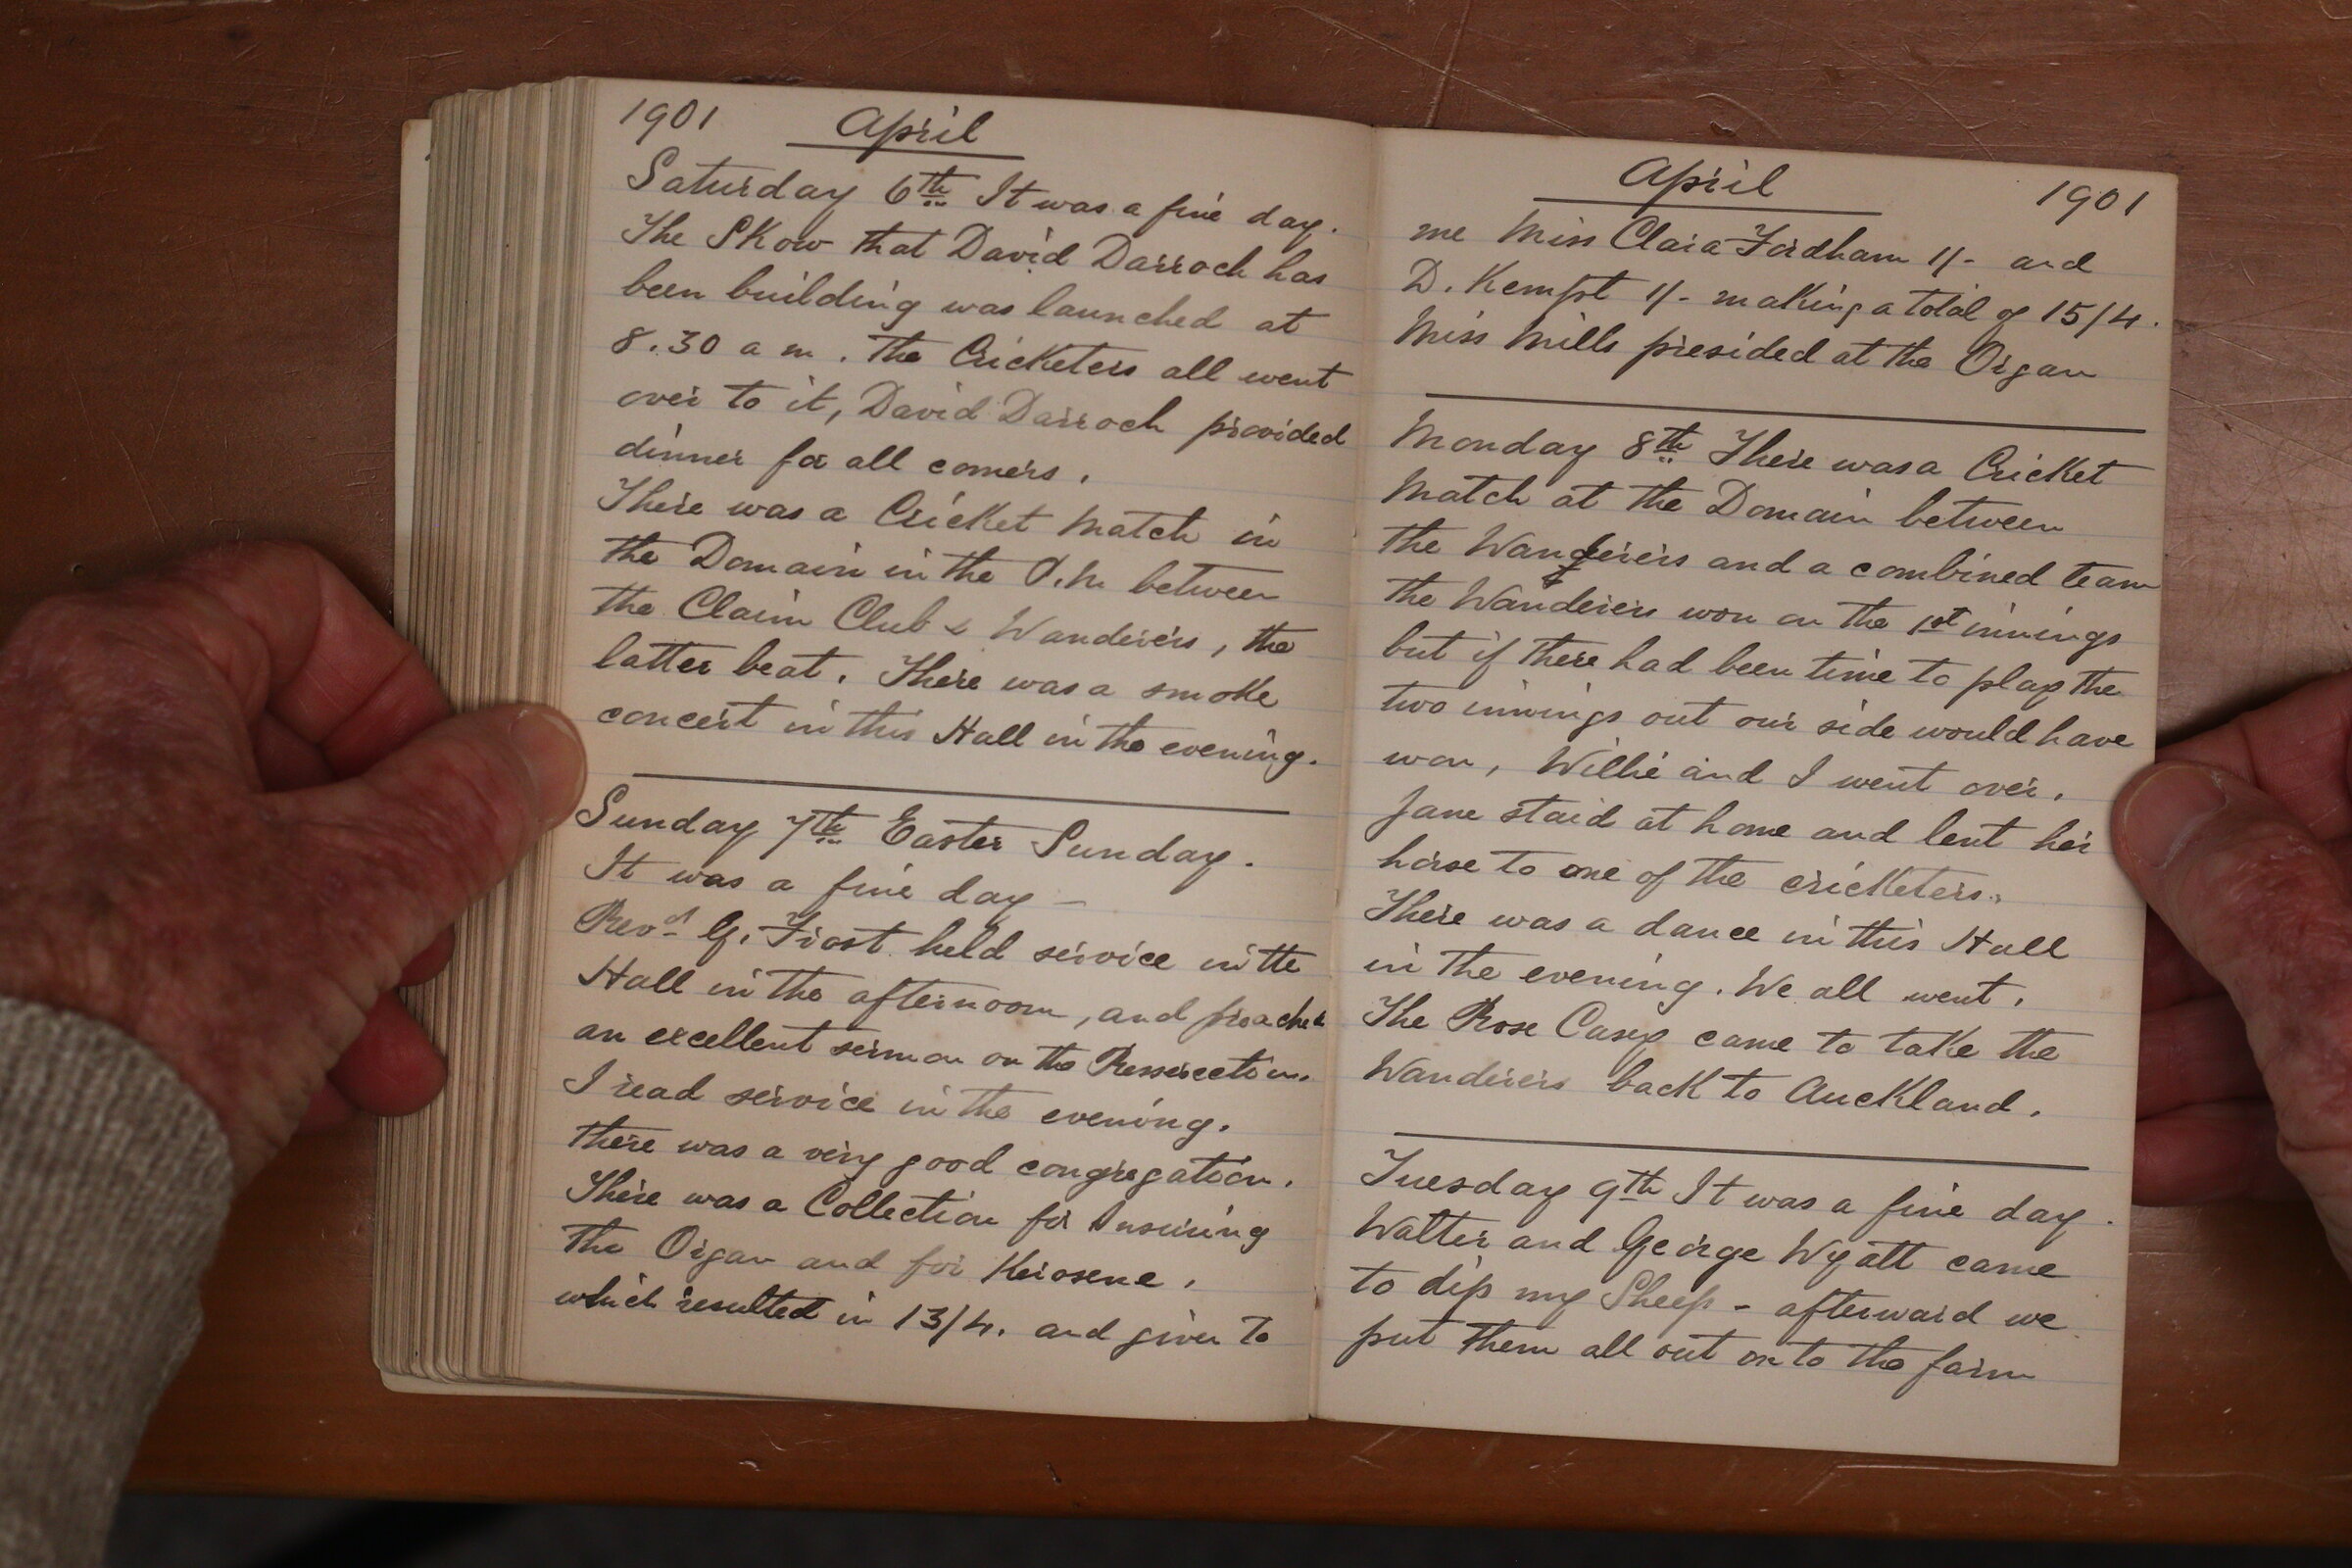 1901 April
Saturday 6th It was a fine day.
The Skow that David Darroch has
been building was launched at
8.30 a m. The Cricketers all went
over to it, David Darroch provided
dinner for all comers.
There was a Cricket Match in
the Domain in the P.M. between
the Claim Club & Wanderers, the
latter beat. There was a smoke
concert in this Hall in the evening.
Sunday 7th Easter Sunday.
It was a fine day -
Revd. G. Frost held service in the
Hall in the afternoon, and preached
an excellent sermon on the Ressirection.
I read service in the evening.
there was a very good congregation.
There was a Collection for Insuring
the Organ and for Kerosene.
which resulted in 13/4. and given to
April 1901
me Miss Clara Fordham 1/- and
D. Kempt 1/- making a total of 15/4.
Miss Mills presided at the Organ
Monday 8th There was a Cricket
Match at the Domain between
the Wanderers and a combined team
the Wanderers won on the 1st innings
but if there had been time to play the
two innings out our side would have
won, Willie and I went over.
Jane staid at home and lent her
horse to one of the cricketers.
There was a dance in this Hall
in the evening. We all went.
The Rose Casey came to take the
Wanderers back to Auckland.
Tuesday 9th It was a fine day.
Walter and George Wyatt came
to dip my Sheep - afterward we
put them all out on to the farm